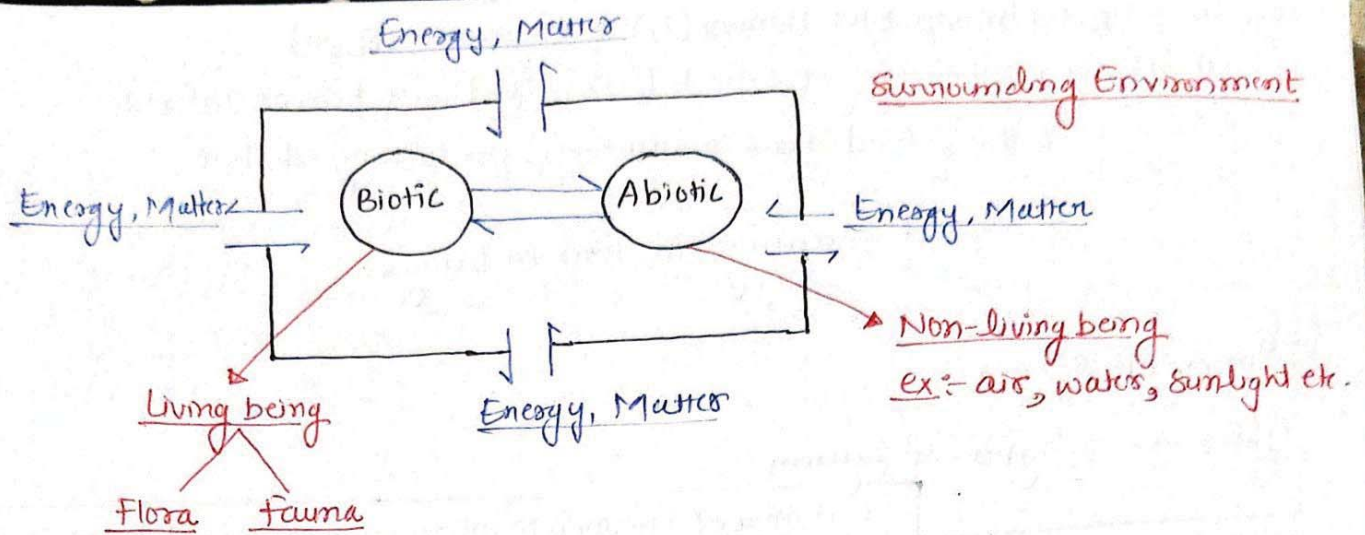 Energy, Matter
Surrounding Environment
Energy, Matter
Biotic
Abiotic
Energy, Matter
Non-living being
ex:- air, water, sunlight etc.
Living being
Energy, Matter
Flora
Fauna